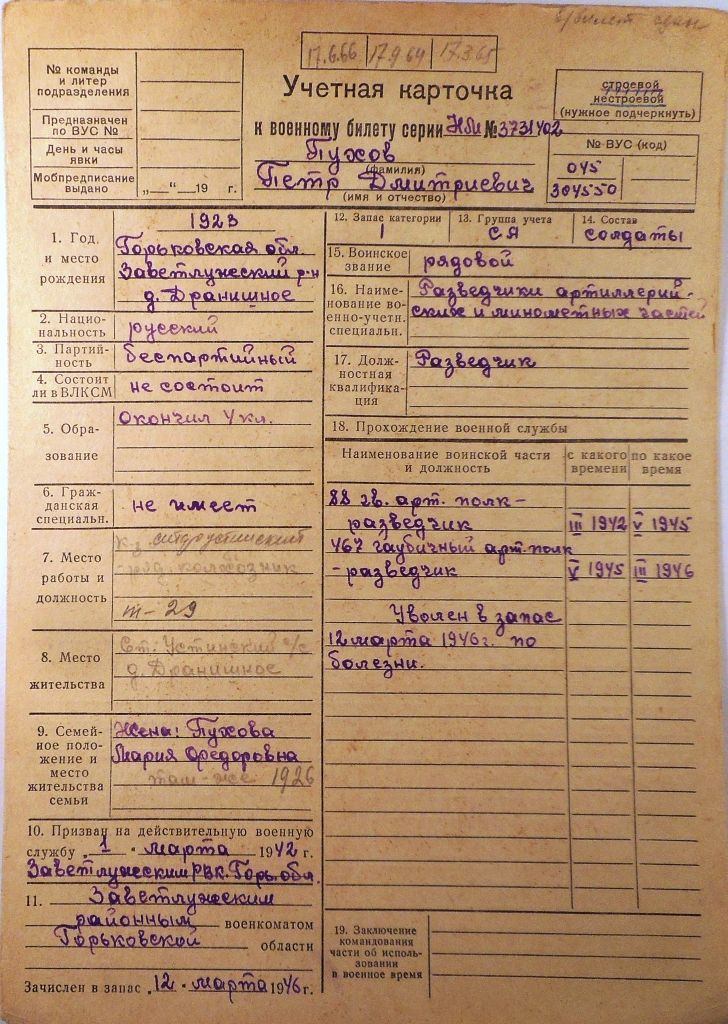 в/билет сдан
17.6.66 17.9.64 17.3.65
№ команды
и литер
подразделения
Предназначен
по ВУС №
День и часы
явки
Мобпредписание
выдано „ “ 19 г.
Учетная карточка
к военному билету серии НЛ №3731402
Пухов
(фамилия)
Петр Дмитриевич
(имя и отчество)
строевой
нестроевой
(нужное подчеркнуть)
№ ВУС (код)
045
304550
1. Год
и место
рождения
1923
Горьковская обл.
Заветлужский р-н
д. Дранишное
2. Нацио-
нальность
русский
3. Партий-
ность
беспартийный
4. Состоит
ли в ВЛКСМ
не состоит
5. Обра-
зование
Окончил 4 кл.
6. Граж-
данская
специальн.
не имеет
7. Место
работы и
должность
к-з
ряд. колхозник
т-29
8. Место
жительства
Ст. Устинский с/с
д. Дранишное
9. Семей-
ное поло-
жение и
место
жительства
семьи
Жена: Пухова
Мария Федоровна
там-же 1926
10. Призван на действительную военную
службу „1“ марта 1942 г.
Заветлужским РВК. Горь. обл.
11. Заветлужским
районным военкоматом
Горьковской области
Зачислен в запас „12“ марта 1946 г.
12. Запас категории
1
13. Группа учета
СЯ
14. Состав
солдаты
15. Воинское
звание
рядовой
16. Наиме-
нование во-
енно-учетн.
специальн.
Разведчики артиллерий-
ских и минометных частей
17. Долж-
ностная
квалифика-
ция
Разведчик
18. Прохождение военной службы
Наименование воинской части
и должность
с какого
времени
по какое
время
88 гв. арт. полк-
разведчик III 1942 V 1945
467 гаубичный арт. полк
- разведчик V 1945 III 1946
Уволен в запас
12 марта 1946г. по
болезни.
19. Заключение
командования
части об исполь-
зовании
в военное время